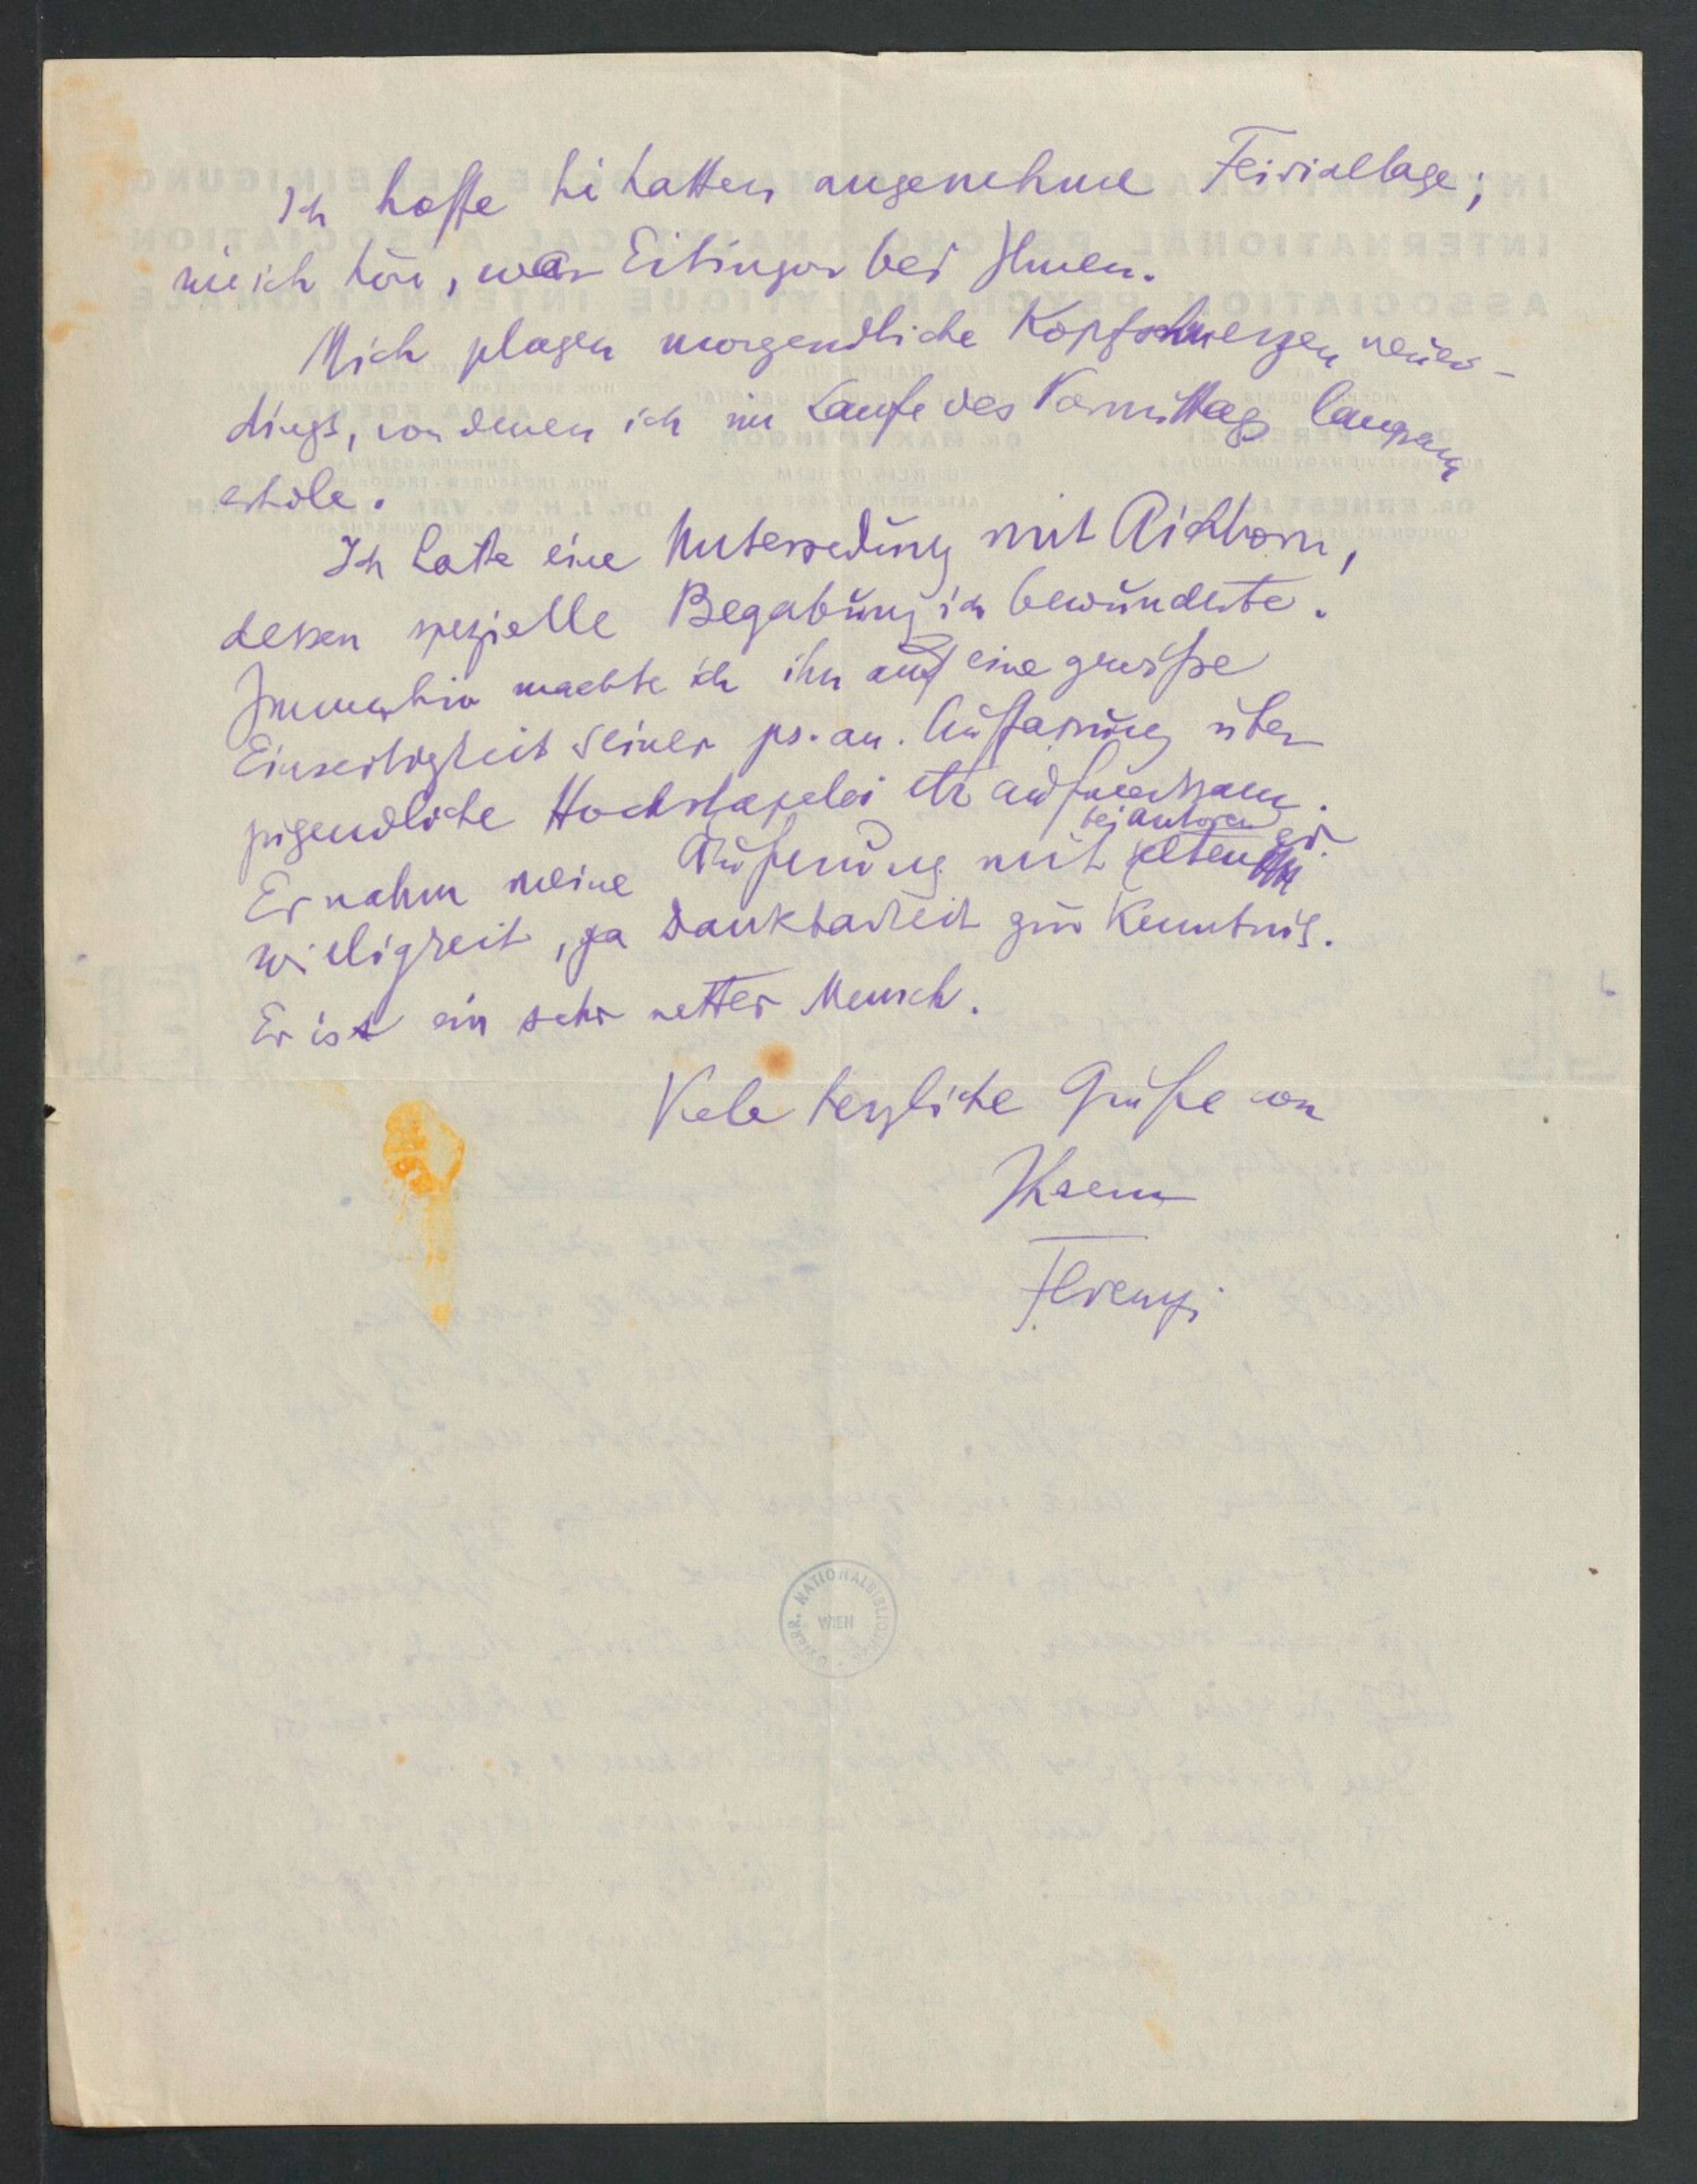 Ich hoffe Sie hatten angenehme Feiertage;
wie ich höre, war Eitingon bei Ihnen.
Mich plagen morgendliche Kopfschmerzen neuer-
dings, von denen ich im Laufe des Vormittags langsam
erhole.
Ich hatte eine Unterredung mit Aichhorn,
dessen spezielle Begabung ich bewunderte.
Immerhin machte ich ihn auf eine gewisse
Einseitigkeit seiner ps. an. Auffassung über
jugendliche Hochstapelei etc aufmerksam.
bei Autoren
Er nahm meine Äußerung mit seltener
willigkeit, ja Dankbarkeit zur Kenntnis.
Er ist ein sehr netter Mensch.
Viele herzliche Grüße von
Ihrem
Ferenczi
ÖSTERR. NATIONALBIBLIOTHEK
WIEN